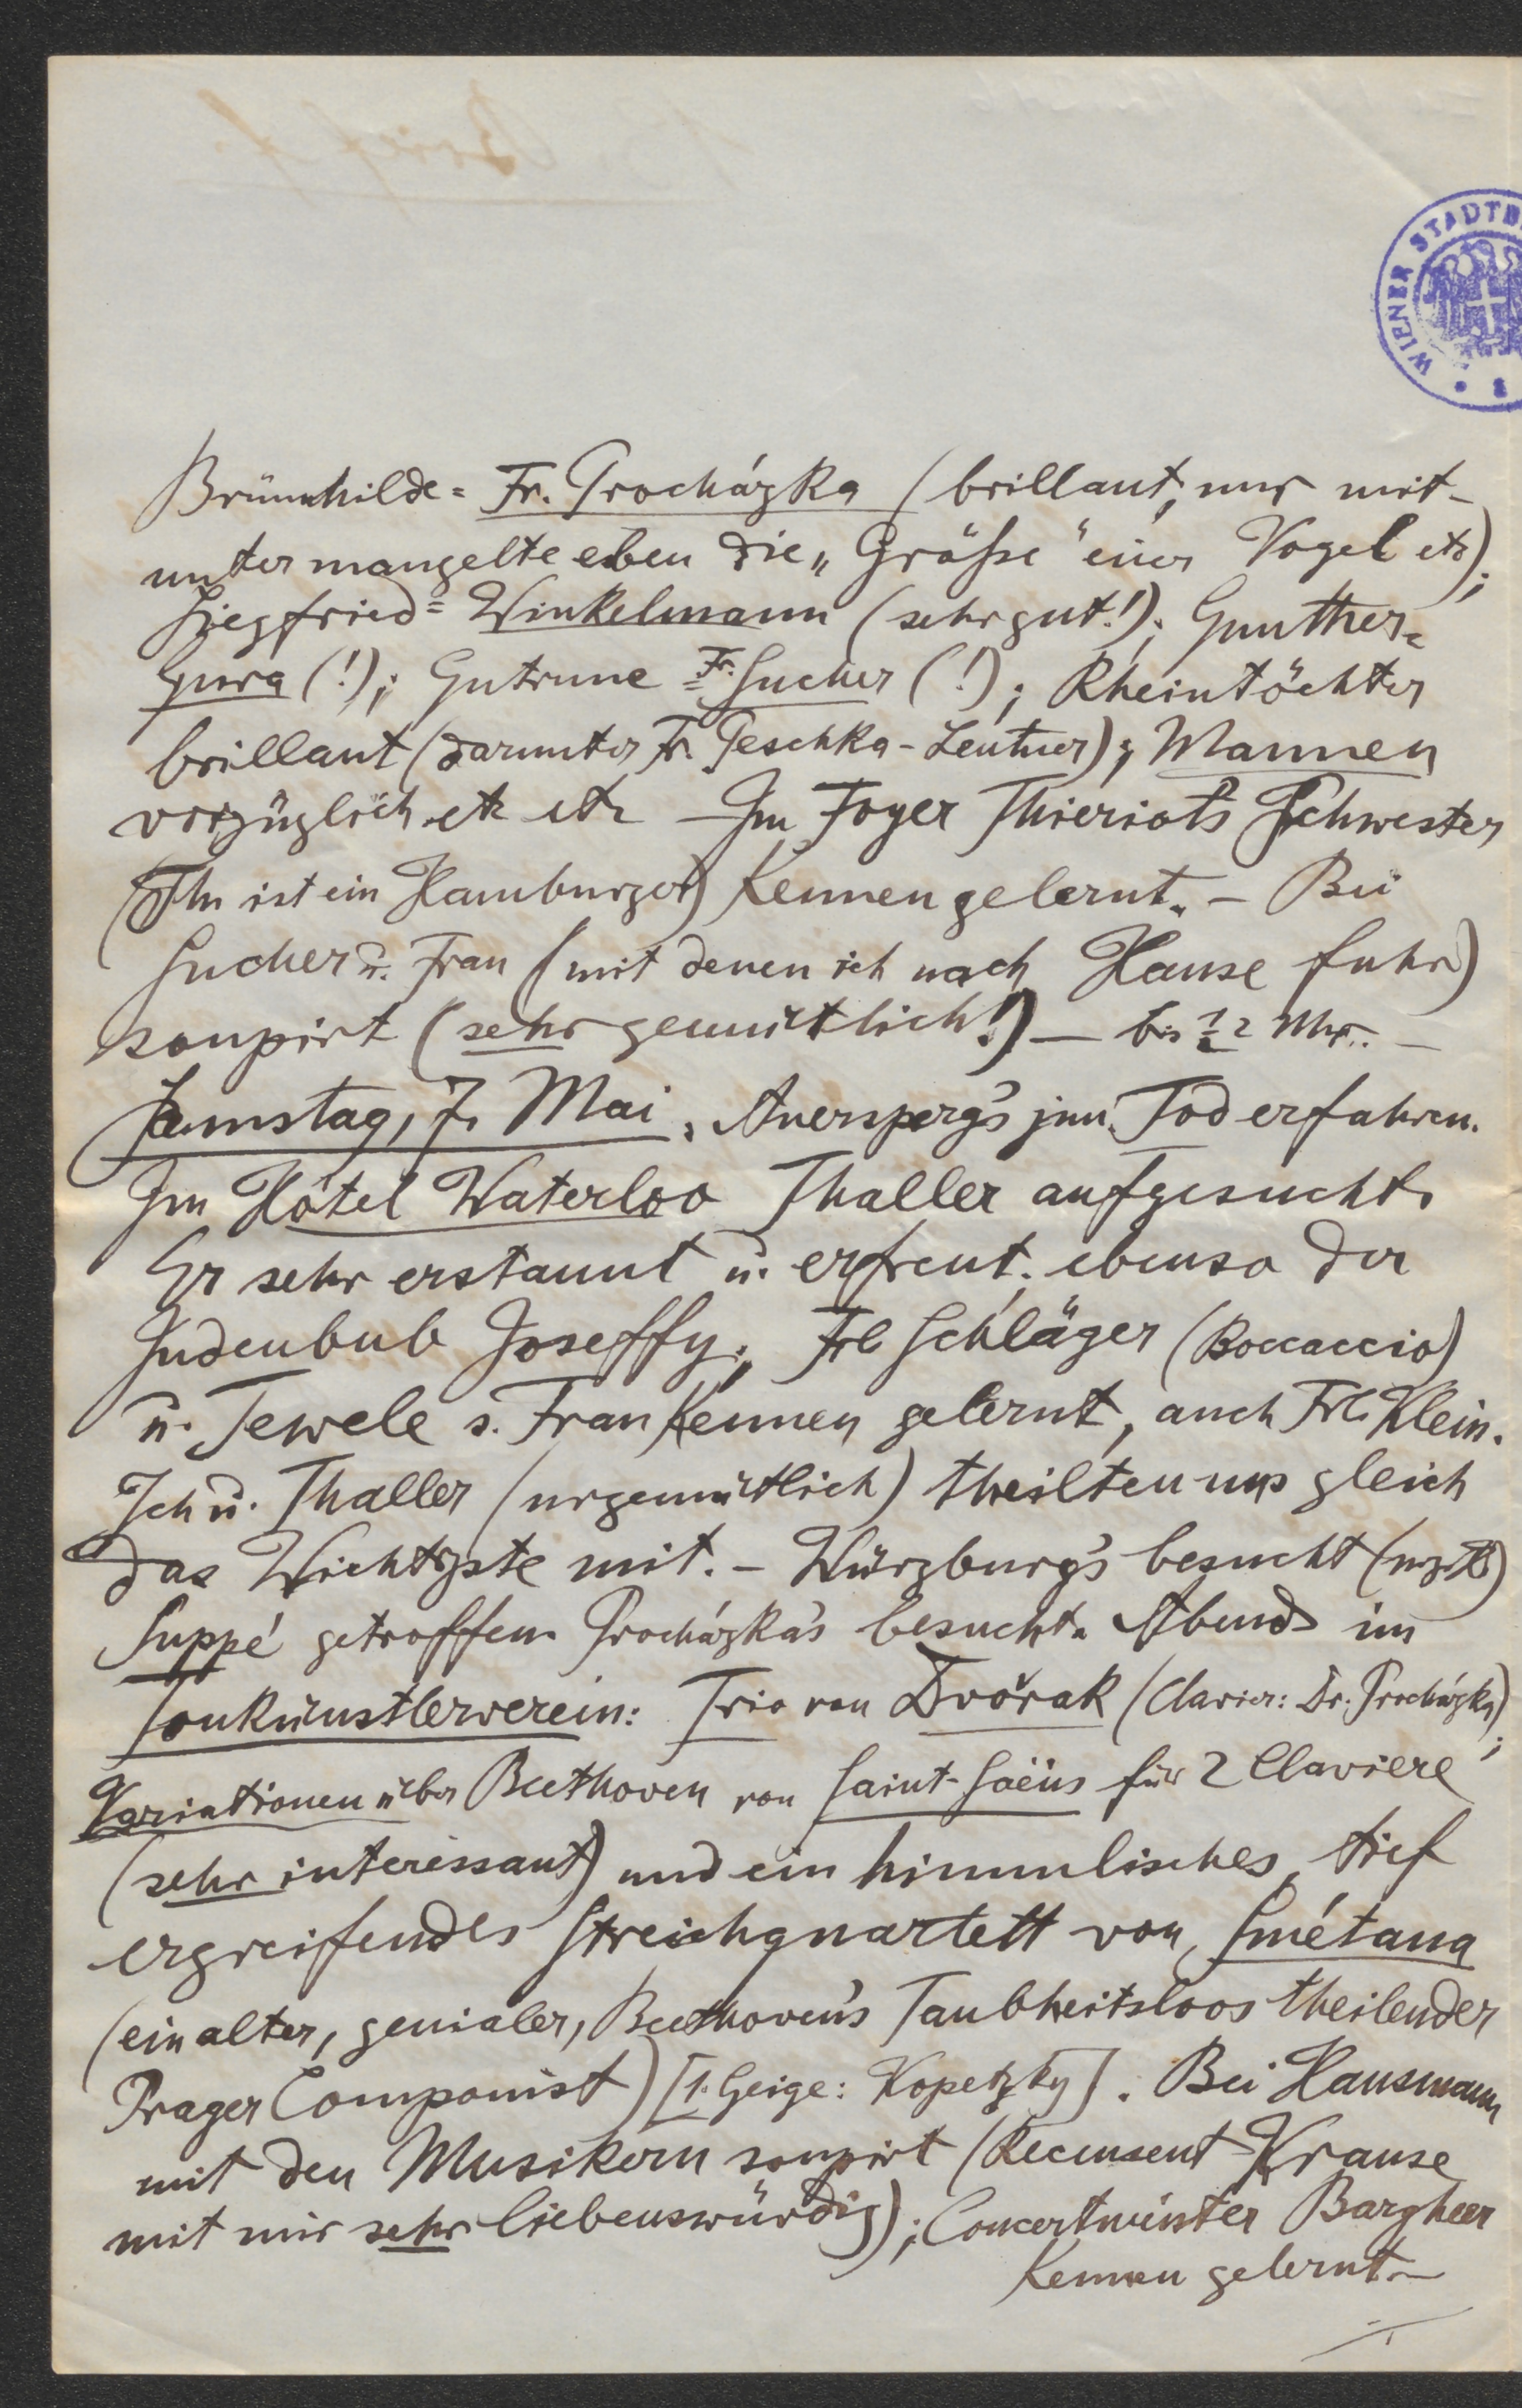 WIENER STADTB
Brünnhilde = Fr. Procházka (brillant, nur mit-
unter mangelte eben die „Größe" einer Vogel etc);
Siegfried = Winkelmann (sehr gut!); Gunther =
Gura (!); Gutrune = Fr. Sucher (!); Rheintöchter
brillant (darunter Fr. Peschka-Leutner); Mannen
vorzüglich etc etc – Im Foyer Thieriots Schwester
(Th. ist ein Hamburger) kennen gelernt. – Bei
Sucher u. Frau (mit denen ich nach Hause fuhr)
soupirt (sehr gemütlich!) – bis ½ 2 Uhr. –
Samstag, 7. Mai. Auersperg's jun. Tod erfahren.
Im Hôtel Waterloo Thaller aufgesucht.
Er sehr erstaunt u. erfreut, ebenso der
Judenbub Joseffy; Frl Schläger (Boccaccio)
u. Tewele s. Frau kennen gelernt, auch Frl. Klein.
Ich u. Thaller (urgemütlich) theilten uns gleich
das Wichtigste mit. – Würzburg's besucht
Suppé getroffen. Procházka's besucht. Abends im
Tonkünstlerverein: Trio von Dvořak (Clavier: Dr. Procházka);
Variationen über Beethoven von Saint-Saëns für 2 Claviere
(sehr interessant) und ein himmlisches, tief
ergreifendes Streichquartett von Smétana
(ein alter, genialer, Beethoven's Taubheitsloos theilender
Prager Componist) [1. Geige: Kopetzky]. Bei Hausmann
mit den Musikern soupirt (Recensent Krause
mit mir sehr liebenswürdig); Concertmeister Bargheer
kennen gelernt. –